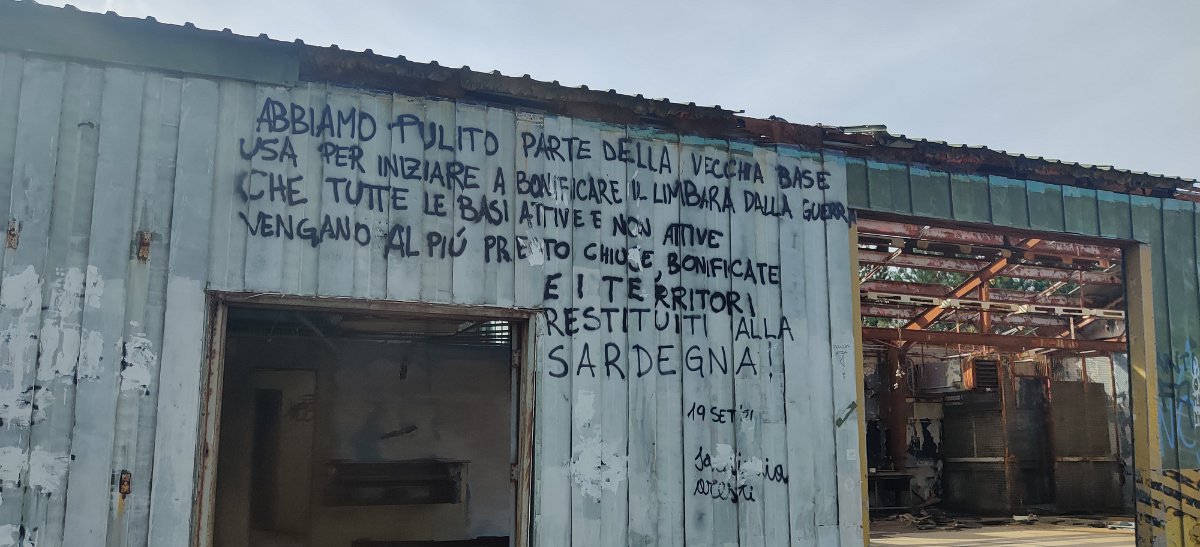 ABBIAMO PULITO PARTE DELLA VECCHIA BASE
USA PER INIZIARE A BONIFICARE IL LIMBARA DALLA GUERRA
CHE TUTTE LE BASI ATTIVE E NON ATTIVE
VENGANO AL PIÚ PRESTO CHIUSE, BONIFICATE
E I TERRITORI
RESTITUITI ALLA
SARDEGNA!
19 SET